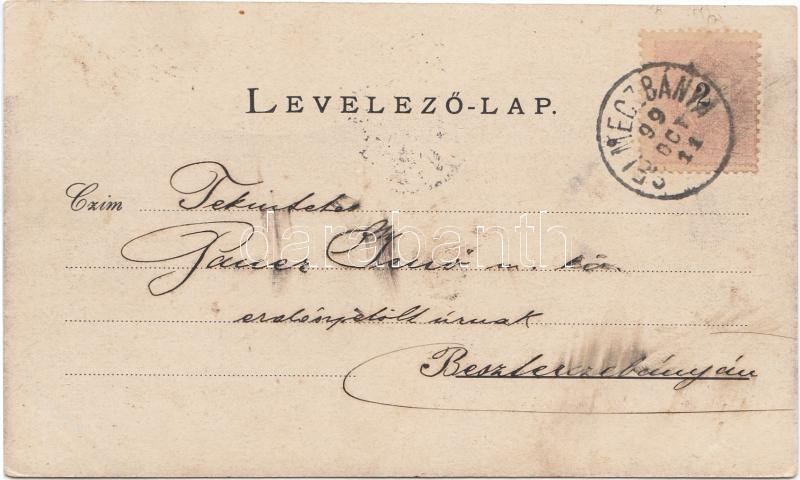 LEVELEZŐ-LAP.
2
SELMECZBÁNYA
99 OCT 11
Czim Tekintetes
Jenő
erdészjelölt úrnak
Beszterczebányán
darabanth